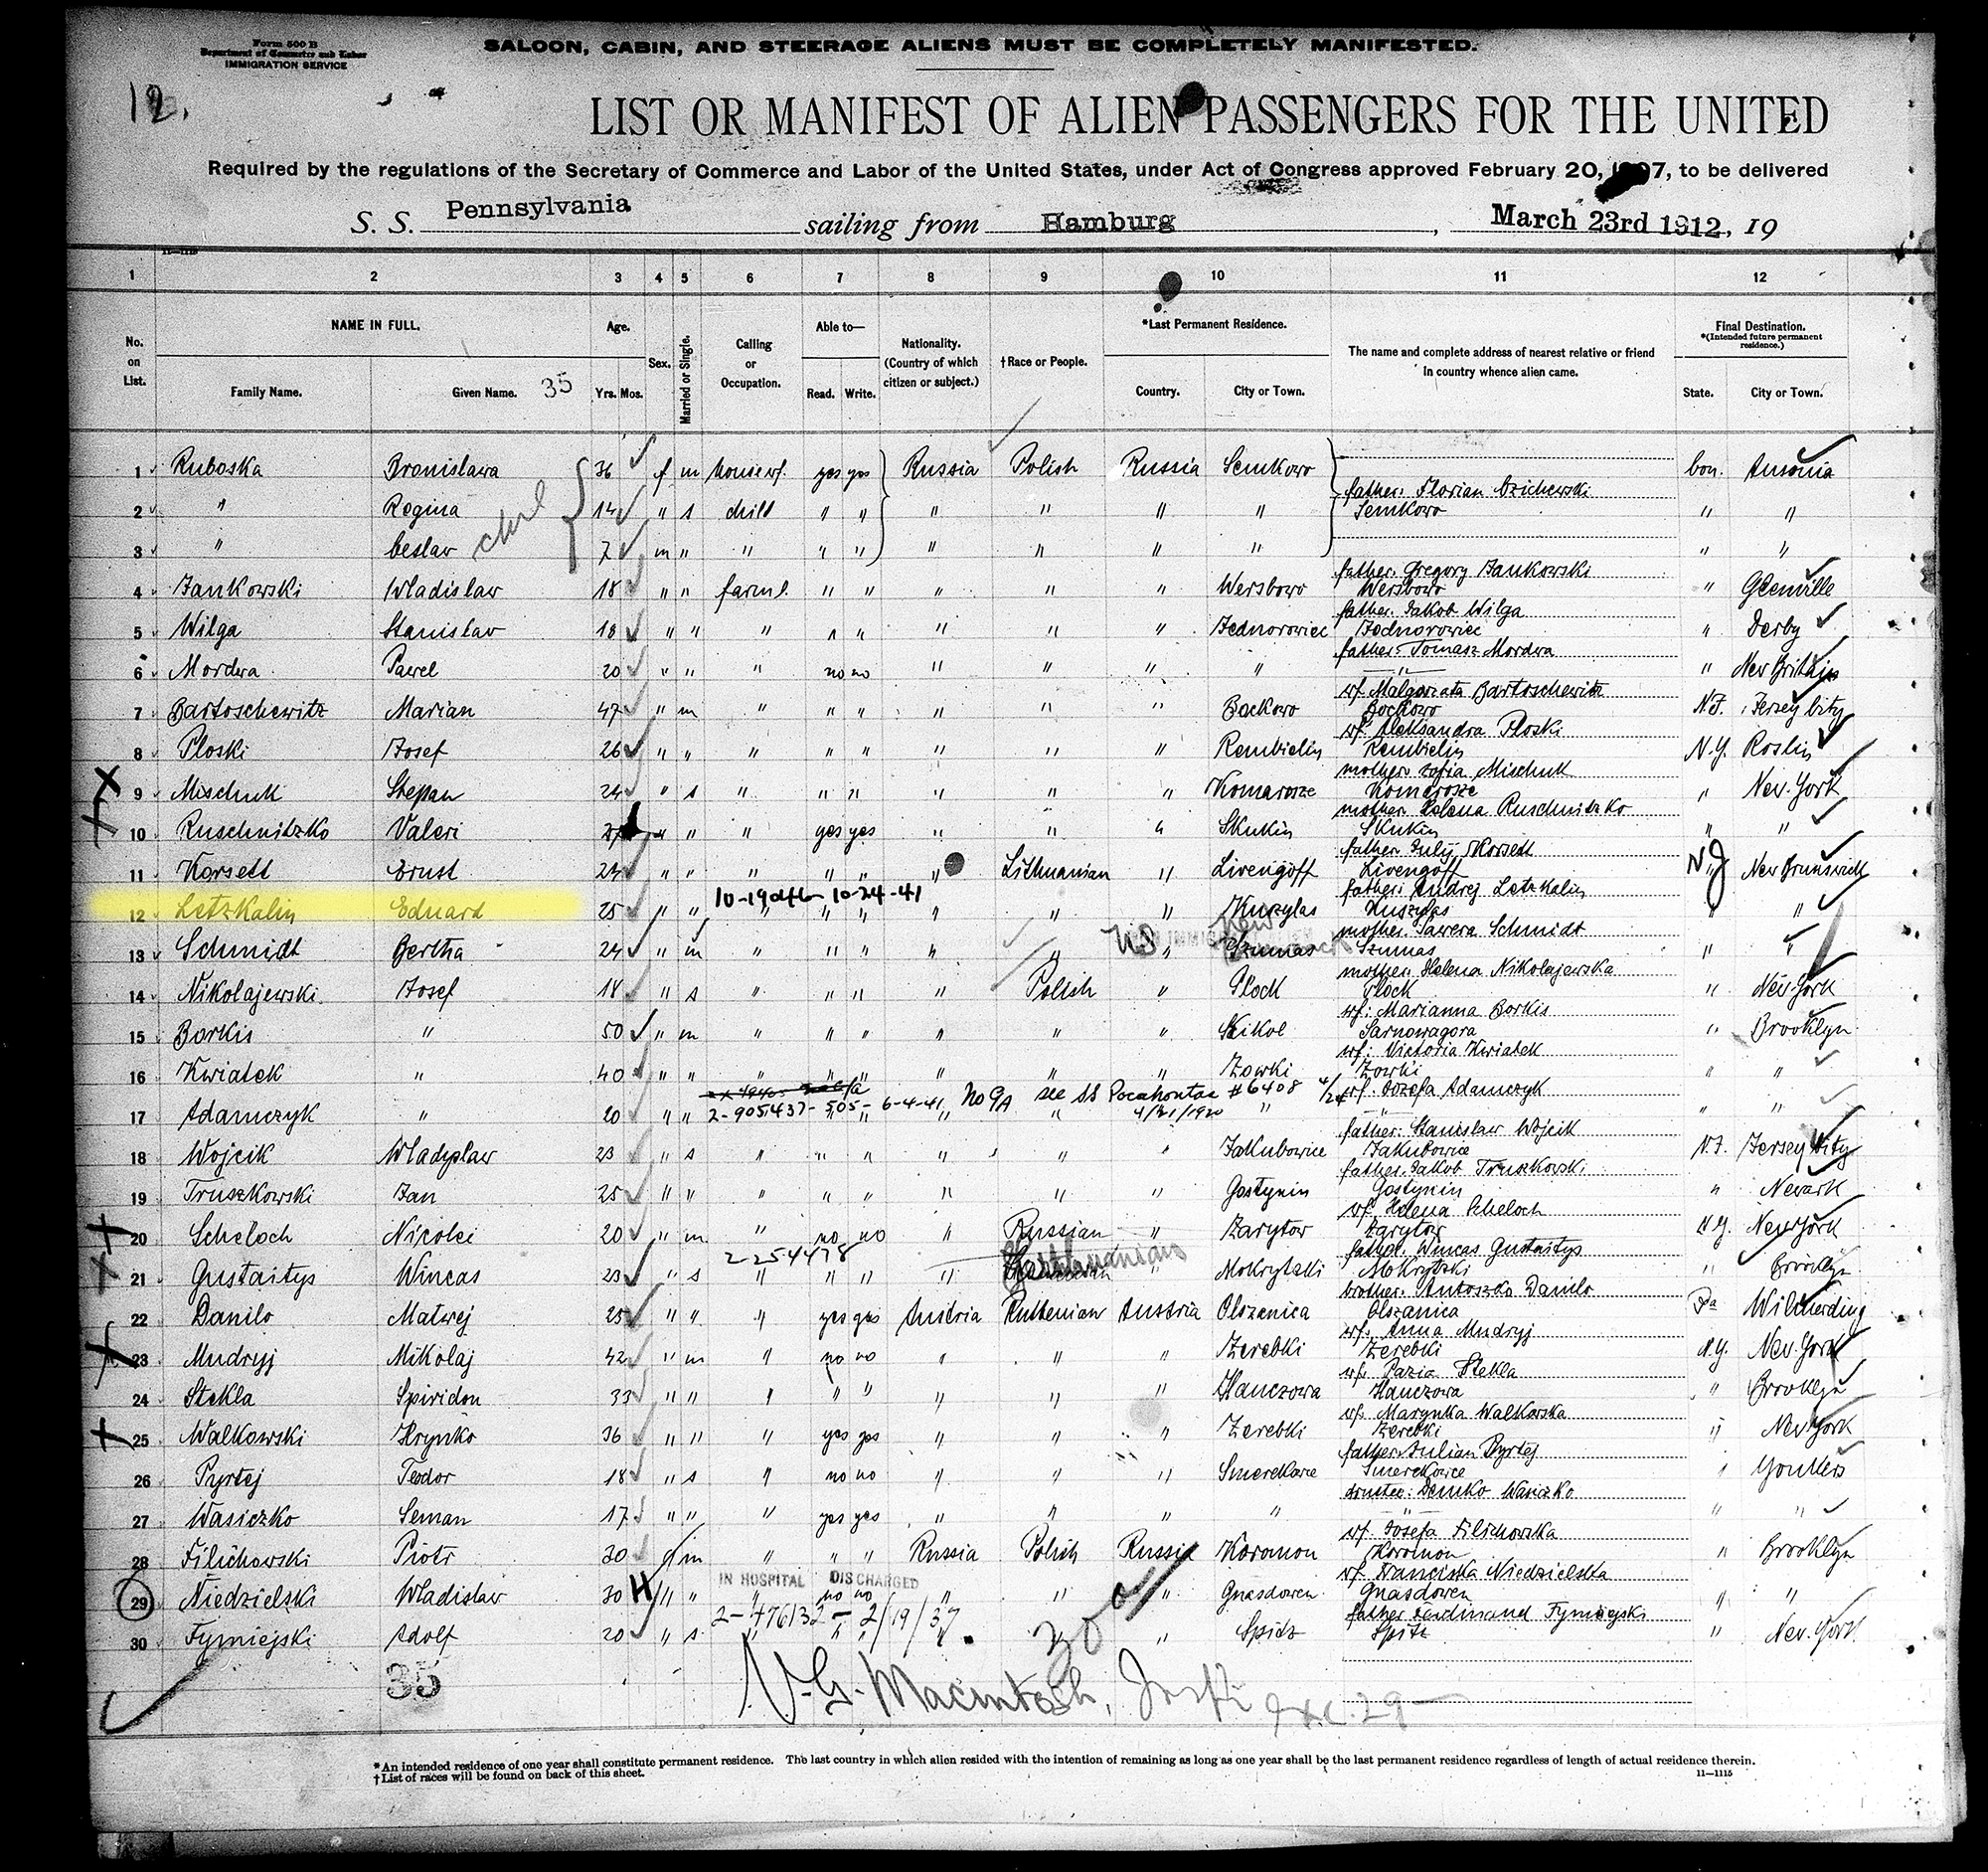 Form 500 B
Department of Commerce and Labor
IMMIGRATION SERVICE
SALOON, CABIN, AND STEERAGE ALIENS MUST BE COMPLETELY MANIFESTED.
12.
LIST OR MANIFEST OF ALIEN PASSENGERS FOR THE UNITED
Required by the regulations of the Secretary of Commerce and Labor of the United States, under Act of Congress approved February 20, 1907, to be delivered
S. S. Pennsylvania sailing from Hamburg, March 23rd 1912, 19
1 2 3 4 5 6 7 8 9 10 11 12
No. on List. NAME IN FULL. Family Name. Given Name. 35 Age. Yrs. Mos. Sex. Married or Single. Calling or Occupation. Able to— Read. Write. Nationality. (Country of which citizen or subject.) †Race or People. *Last Permanent Residence. Country. City or Town. The name and complete address of nearest relative or friend in country whence alien came. Final Destination. *(Intended future permanent residence.) State. City or Town.
1 Ruboska Bronislawa 36 f m housewf. yes yes Russia Polish Russia Semkowo Con. Ansonia
2 " Regina 14 " s child " " " " " " father: Florian Czichewski Semkowo " "
3 " Ceslaw 7 m " " " " " " " " " "
4 Jankowski Wladislaw 18 " " farml. " " " " " Wersbowo father: Gregory Jankowski Wersbowo " Glenville
5 Wilga Stanislav 18 " " " " " " " " Jednorowiec father: Jakob Wilga Jednorowiec " Derby
6 Mordwa Pawel 20 " " " no no " " " " father: Tomasz Mordwa " " New Britain
7 Bartoschewitz Marian 47 " m " " " " " " Bockowo wf. Malgorzata Bartoschewitz Bockowo N.J. Jersey City
8 Ploski Josef 26 " " " " " " " " Rembielin wf. Aleksandra Ploski Rembielin N.Y. Roslin
9 Mischuk Stepan 24 " s " " " " " " Komarosze mother: Zofia Mischuk Komarosze " New-York
10 Ruschnitzko Valeri " " " yes yes " " " Skukin mother: Helena Ruschnitzko Skukin " "
11 Korsett Ernst 24 " " " " " " Lithuanian " Livengoff father: July Korsett Livengoff N.J. New Brunswick
10-24-41
12 Letzkalin Eduard 25 " " " " " " " " Kuszylas father: Andrej Letzkalin Kuszylas " "
13 Schmidt Bertha 24 " m " " " " " " Szumas mother: Sawera Schmidt Szumas " "
14 Nikolajewski Josef 18 " s " " " " Polish " Plock mother: Helena Nikolajewska Plock " New-York
15 Borkis " 50 " m " " " " " " Kikol wf: Marianna Borkis Sarnowagora " Brooklyn
16 Kwiatek " 40 " " " " " " " " Zowki wf: Victoria Kwiatek Zowki
2-905437-505- 6-4-41 No 9A see SS Pocahontas #6408 4/21/1920
17 Adamczyk " 20 " " " " wf. Jozefa Adamczyk " "
18 Wojcik Wladyslaw 23 " s " " " " " " Jakubowice father: Stanislaw Wojcik Jakubowice N.J. Jersey City
19 Truszkowski Jan 25 " " " " " " " " Gostynin father: Jakob Truszkowski Gostynin " Newark
20 Scheloch Nicolei 20 " m " no no " Russian " Zarytow wf. Helena Scheloch Zarytow N.Y. New York
2-254478
21 Gustaitys Wincas 23 " s " " " " Lithuanians " Mokrytzki father: Wincas Gustaitys Mokrytzki " Brooklyn
22 Danilo Matwej 25 " " " yes yes Austria Ruthenian Austria Olszanica brother: Antoszko Danilo Olszanica Pa Wilmerding
23 Mudryj Mikolaj 42 " m " no no " " " Zerebki wf. Anna Mudryj Zerebki N.Y. New-York
24 Stekla Spiridon 33 " " " " " " " " Hanczowa wf. Pazia Stekla Hanczowa " Brooklyn
25 Walkowski Hrynko 36 " " " yes yes " " " Zerebki wf. Marynka Walkowska Zerebki " New York
26 Pyrtej Teodor 18 " s " no no " " " Smerekowce father: Julian Pyrtej Smerekowce " Yonkers
27 Wasiczko Seman 17 " " " yes yes " " " " Demko Wasiczko " " "
28 Filichowski Piotr 30 " m " " " Russia Polish Russia Koromon wf. Josefa Filichowska Koromon " Brooklyn
IN HOSPITAL DISCHARGED
29 Niedzielski Wladislaw 30 H " " " no no " " " Gnasdowen wf. Franciska Niedzielska Gnasdowen " "
2-476132- 2/19/37
30 Fymiejski Adolf 20 " s " " " " " Spitz father Ferdinand Fymiejski Spitz " New-York
35
V.G. Macintosh,
*An intended residence of one year shall constitute permanent residence. The last country in which alien resided with the intention of remaining as long as one year shall be the last permanent residence regardless of length of actual residence therein.
†List of races will be found on back of this sheet.
11—1115